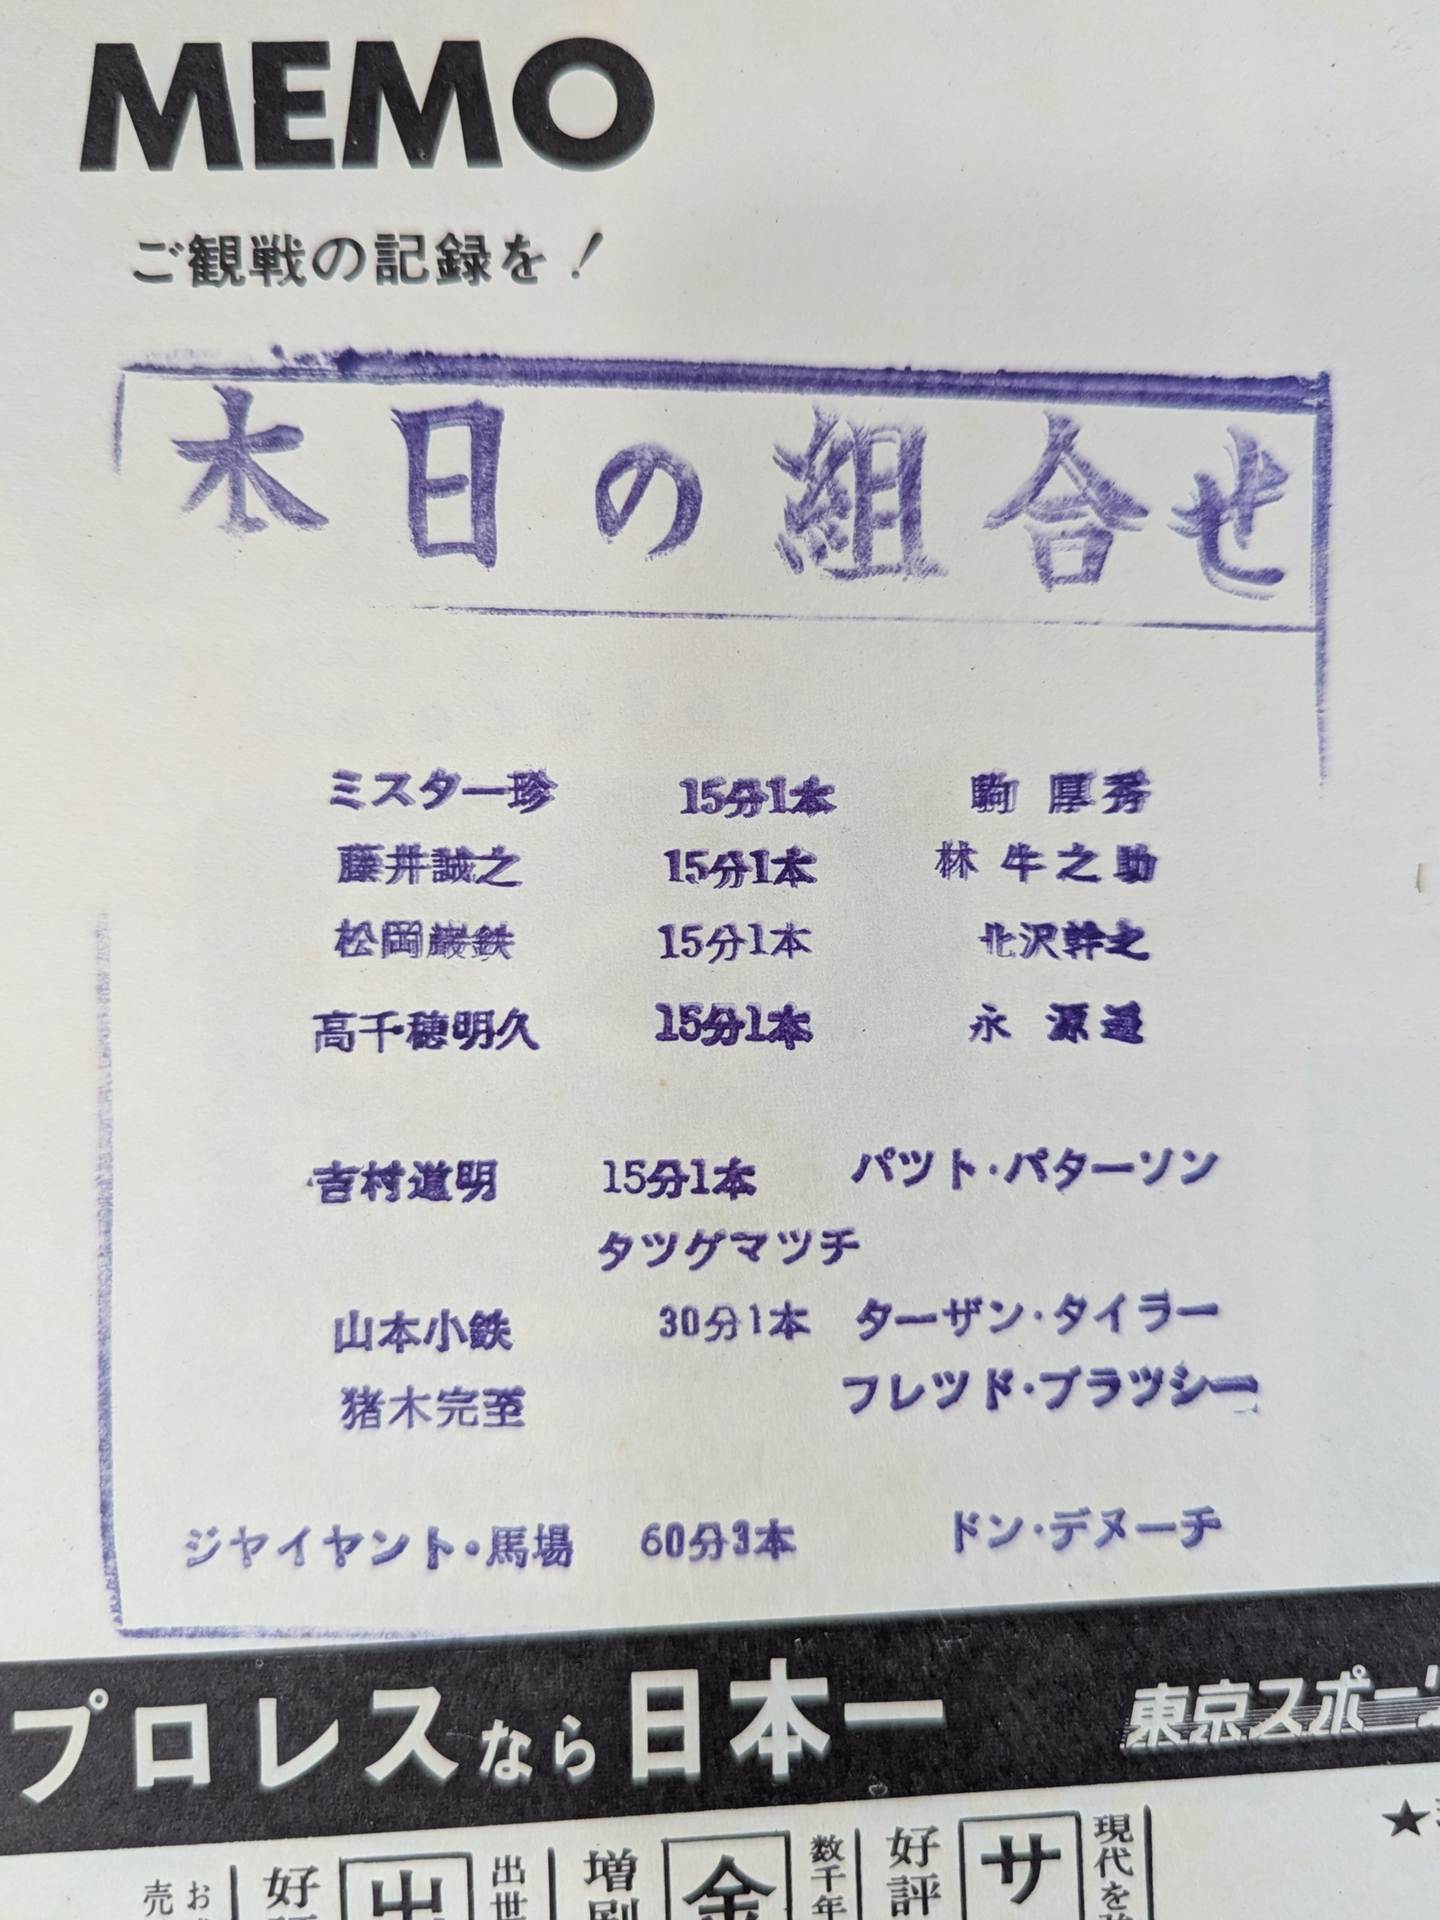 MEMO
ご観戦の記録を！
本日の組合せ
ミスター珍 15分1本 駒 厚秀
藤井誠之 15分1本 林 牛之助
松岡巌鉄 15分1本 北沢幹之
高千穂明久 15分1本 永 源遥
吉村道明 15分1本 パツト・パターソン
タツグマツチ
山本小鉄 30分1本 ターザン・タイラー
猪木完至 フレツド・ブラツシー
ジヤイヤント・馬場 60分3本 ドン・デヌーチ
プロレスなら日本一 東京スポー
現代を
サ
好評
数千年
金
増刷
出世
出
好
お
売